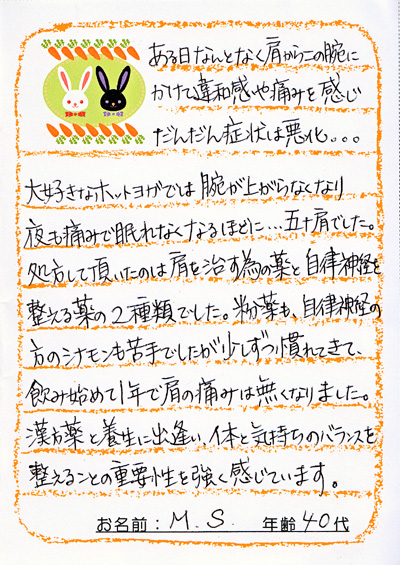 ある日なんとなく肩から二の腕に
かけて違和感や痛みを感じ
だんだん症状は悪化...
大好きなホットヨガでは腕が上がらなくなり
夜も痛みで眠れなくなるほどに…五十肩でした。
処方して頂いたのは肩を治す為の薬と自律神経を
整える薬の2種類でした。粉薬も、自律神経の
方のシナモンも苦手でしたが少しずつ慣れてきて、
飲み始めて1年で肩の痛みは無くなりました。
漢方薬と養生に出逢い、体と気持ちのバランスを
整えることの重要性を強く感じています。
お名前：M.S. 年齢40代